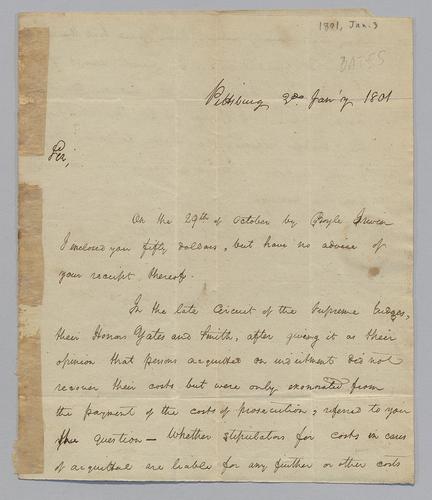 1801, Jan. 3
BATES
Pittsburg 3d. Jan'y 1801
Sir,
On the 29th of October by Boyle Irwin
I inclosed you fifty dollars, but have no advice of
your receipt thereof.
In the late Circuit of the Supreme Judges,
their Honors Yates and Smith, after giving it as their
opinion that persons acquitted on indictment did not
recover their costs but were only exonerated from
the payment of the costs of prosecution, referred to your
question — Whether stipulators for costs in cases
of acquittal are liable for any further or other costs